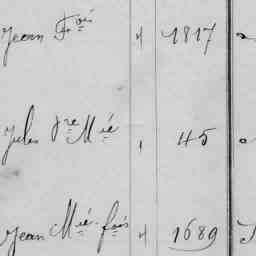 Jean Fois 4 1817
Jules Jre Mié 1 45
Jean Mié. fois 4 1689